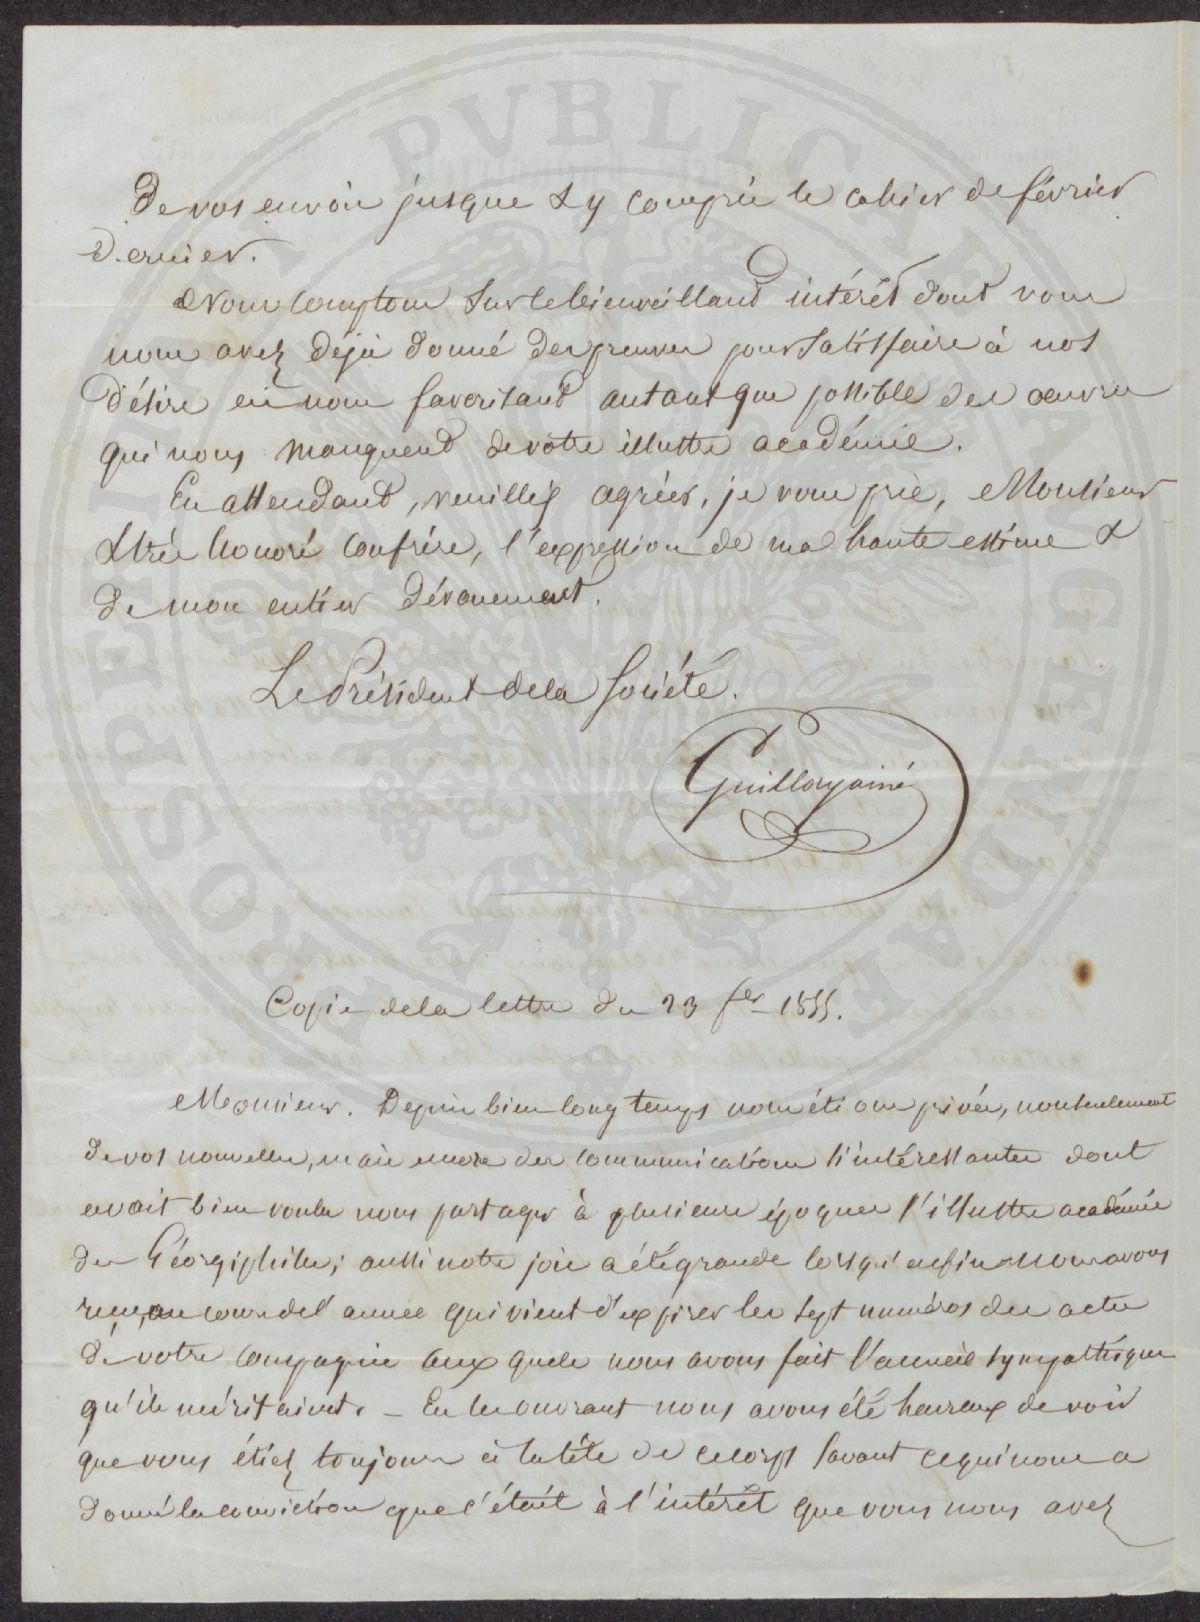 De vos envois jusque & y compris le cahier de février
dernier.
Nous comptons sur le bienveillant intérêt dont vous
nous avez déjà donné des preuves pour satisfaire à nos
désirs en nous favorisant autant que possible des œuvres
qui nous manquent de votre illustre académie.
En attendant, veuillez agréer, je vous prie, Monsieur
& très honoré confrère, l'expression de ma haute estime &
de mon entier dévouement.
Le Président de la Société.
Guillory ainé
Copie de la lettre du 23 fer 1855.
Monsieur. Depuis bien long temps nous étions privés, non seulement
de vos nouvelles, mais encore des communications si intéressantes dont
avait bien voulu nous partager à plusieurs époques l'illustre académie
des Géorgiphiles; aussi notre joie a été grande lorsqu'enfin nous avons
reçu, au cours de l'année qui vient d'expirer les sept numéros des actes
de votre compagnie aux quels nous avons fait l'accueil sympathique
qu'ils méritaient. – En les ouvrant nous avons été heureux de voir
que vous étiez toujours à la tête de ce corps savant ce qui nous a
donné la conviction que c'était à l'intérêt que vous nous avez
PROSPERITATI PUBLICAE AUGENDAE